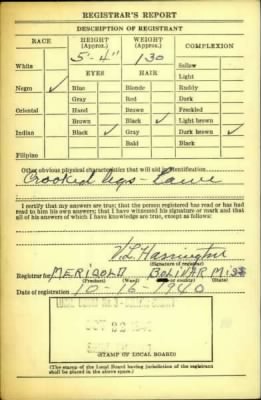 REGISTRAR'S REPORT
DESCRIPTION OF REGISTRANT
RACE
HEIGHT (Approx.)
WEIGHT (Approx.)
COMPLEXION
5-4" 130
White
EYES HAIR
Sallow
Light
Negro ✓ Blue Blonde Ruddy
Gray Red Dark
Oriental Hazel Brown Freckled
Brown Black ✓ Light brown
Indian Black ✓ Gray Dark brown ✓
Bald Black
Filipino
Other obvious physical characteristics that will aid in identification
Crooked legs -
I certify that my answers are true; that the person registered has read or has had
read to him his own answers; that I have witnessed his signature or mark and that
all of his answers of which I have knowledge are true, except as follows:
V. L. Harrington
(Signature of registrar)
Registrar for MERIGOLD BOLIVAR Miss
(Precinct) (Ward) (City or county) (State)
Date of registration 10-16-1940
(STAMP OF LOCAL BOARD)
(The stamp of the Local Board having jurisdiction of the registrant
shall be placed in the above space.)